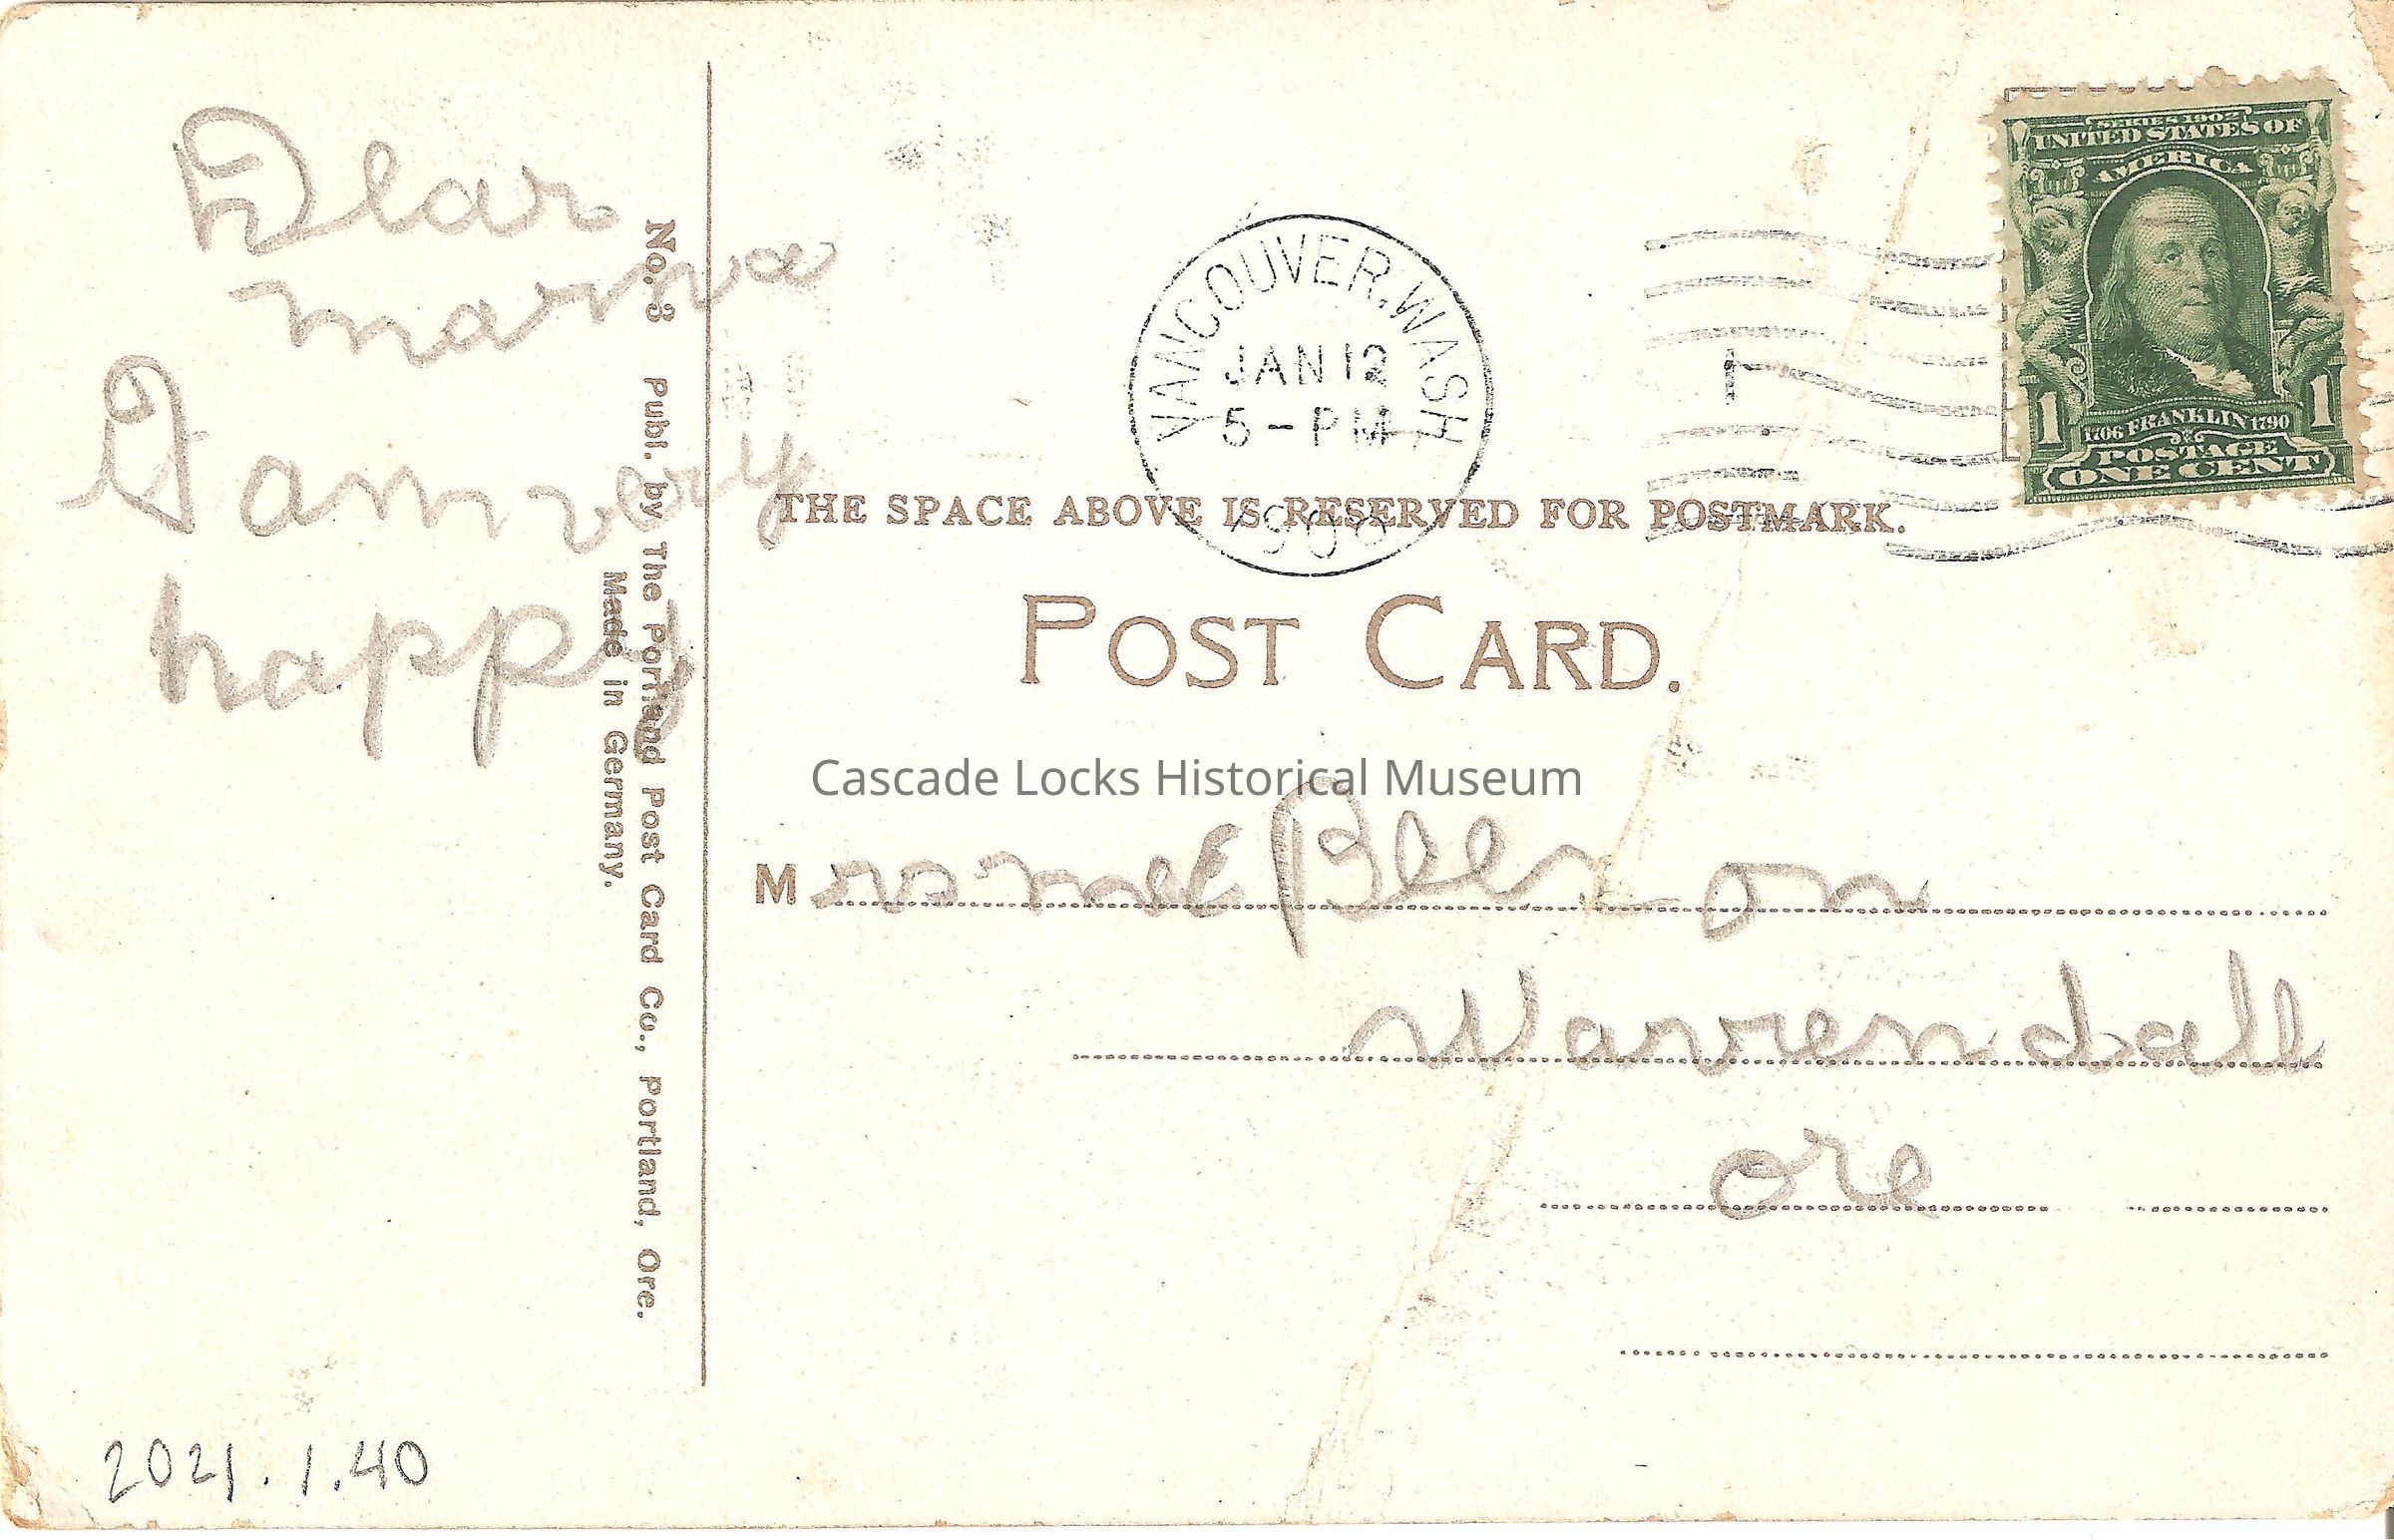 Dear
mama
I am very
happy
No. 3 Publ. by The Portland Post Card Co., Portland, Ore.
Made in Germany.
VANCOUVER, WASH
JAN 12
5-PM
SERIES 1902
UNITED STATES OF
AMERICA
1 1
1706 FRANKLIN 1790
POSTAGE
ONE CENT
THE SPACE ABOVE IS RESERVED FOR POSTMARK.
POST CARD.
Cascade Locks Historical Museum
Mrs
Warrendall
ore
2021.1.40